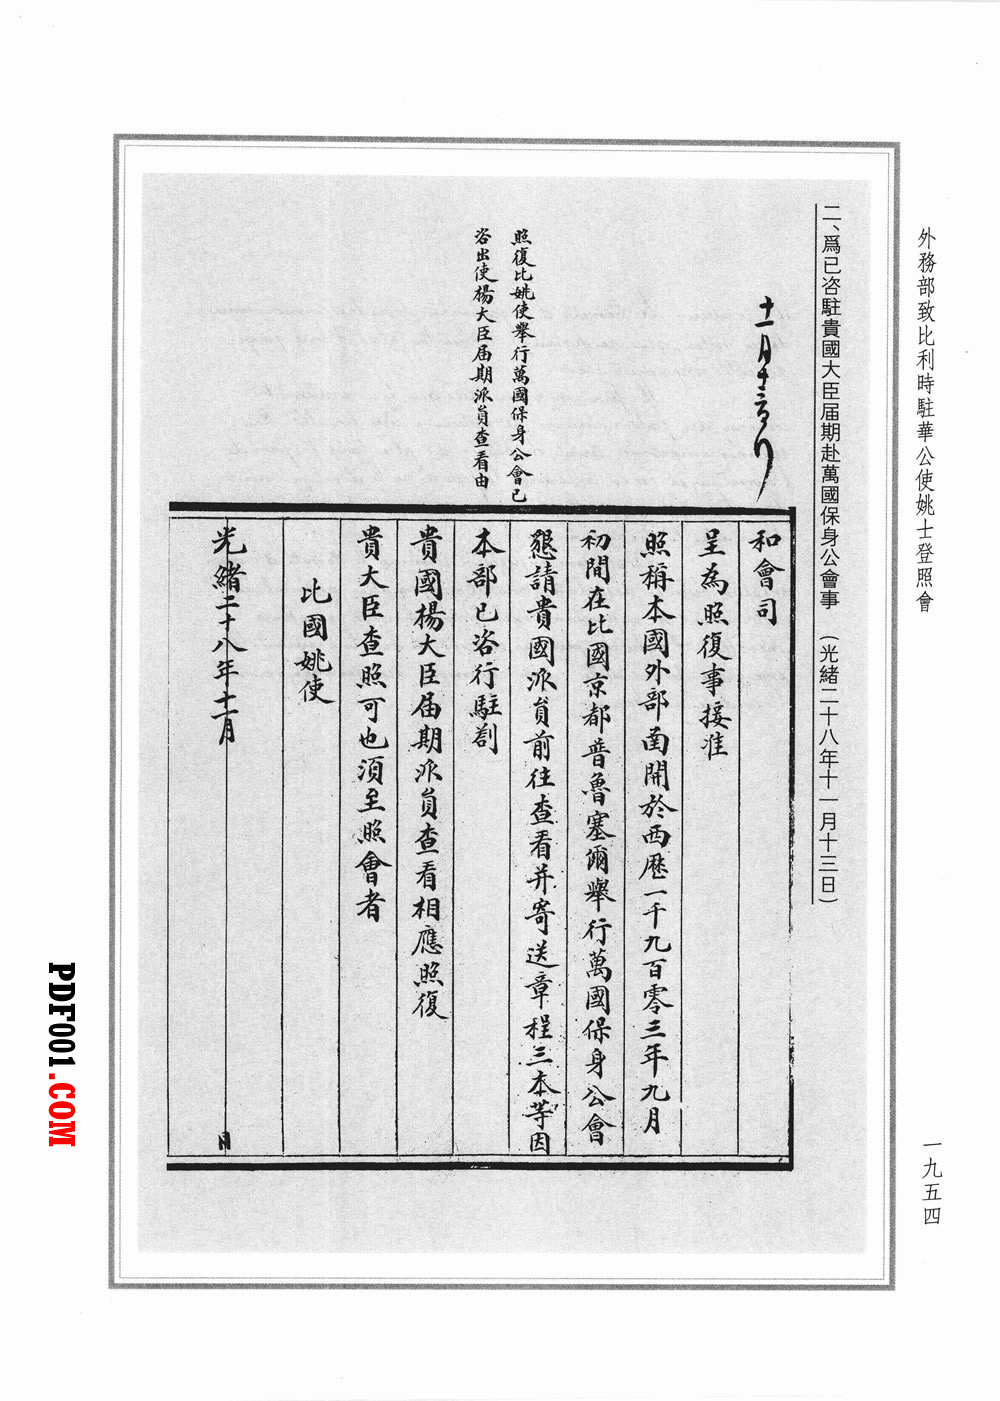 外務部致比利時駐華公使姚士登照會
一九五四
二、爲已咨駐貴國大臣届期赴萬國保身公會事　（光緒二十八年十一月十三日）
十一月十三日行
照復比姚使舉行萬國保身公會已
咨出使楊大臣届期派員查看由
和會司
呈為照復事接准
照稱本國外部函開於西歷一千九百零三年九月
初間在比國京都普魯塞爾舉行萬國保身公會
懇請貴國派員前往查看并寄送章程三本等因
本部已咨行駐劄
貴國楊大臣届期派員查看相應照復
貴大臣查照可也須至照會者
比國姚使
光緒二十八年十一月
日
PDF001.COM